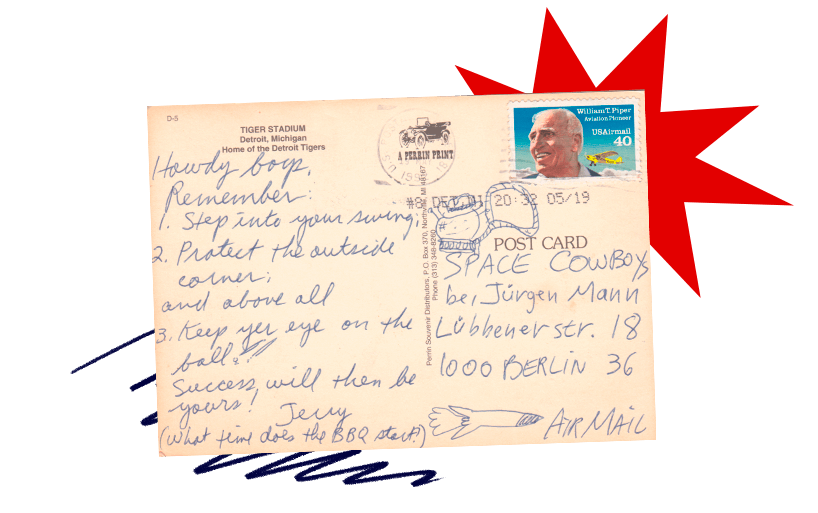 D-5
TIGER STADIUM
Detroit, Michigan
Home of the Detroit Tigers
Howdy boys,
Remember:
1. Step into your swing;
2. Protect the outside
corner;
and above all
3. Keep yer eye on the
ball!!
Success, will then be
yours!
Jerry
(What time does the BBQ start?)
A PERRIN PRINT
Perrin Souvenir Distributors, P.O. Box 370, Northville, MI 48167
Phone (313) 348-8260
William T. Piper
Aviation Pioneer
USAirmail
40
#8 DET, MI 20:32 05/19
POST CARD
SPACE COWBOYS
bei Jürgen Mann
Lübbener str. 18
1000 BERLIN 36
AIR MAIL